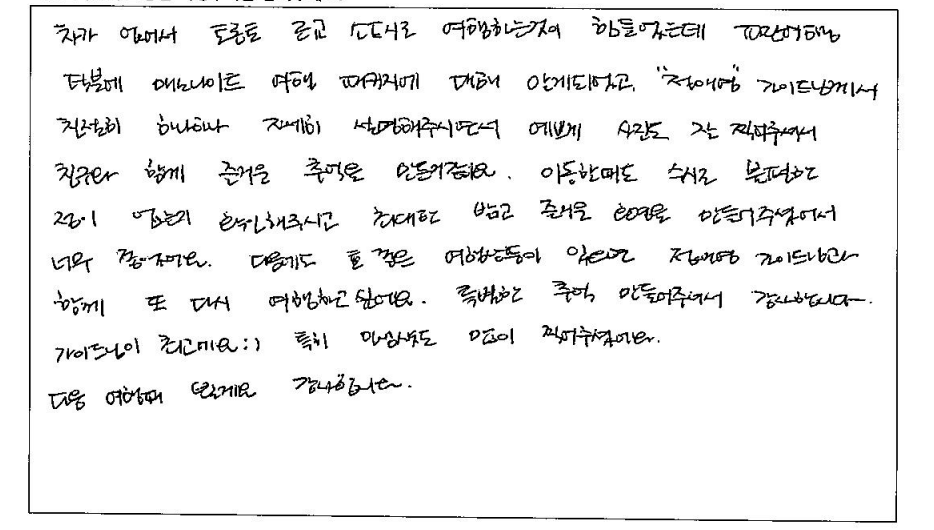 차가 없어서 토론토 근교 소도시로 여행하는것이 힘들었는데 파란여행
덕분에 매노나이트 여행 패키지에 대해 알게되었고, "정애영" 가이드님께서
친절히 하나하나 자세히 설명해주시면서 예쁘게 사진도 잘 찍어주셔서
친구와 함께 즐거운 추억을 만들어줬네요. 이동할때도 수시로 불편한
점이 없는지 확인해주시고 최대한 밝고 즐거운 환경을 만들어주셨어서
너무 좋았어요. 다음에도 좋은 여행상품이 있으면 정애영 가이드님과
함께 또 다시 여행하고 싶어요. 특별한 추억 만들어주셔서 감사합니다.
가이드님이 최고예요:) 특히 인생샷도 많이 찍어주셨어요.
다음 여행때 뵐게요 감사합니다.